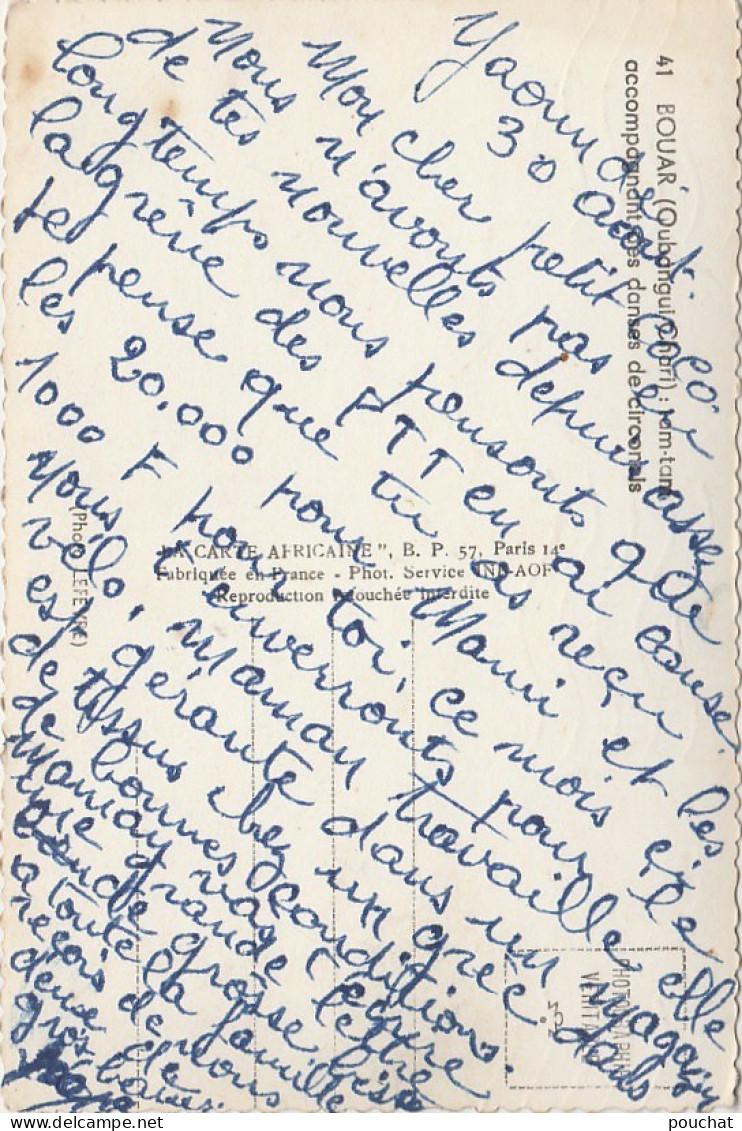 Yaoundé
30 août.
Mon cher petit Coco.
Nous n'avons pas eu
de tes nouvelles depuis assez
longtemps nous pensons que
la grève des PTT en ai cause.
Je pense que tu as reçu
les 20.000 pour Mami et les
1000 F pour toi, ce mois ci
nous t'enverronts pour le
vélo, Maman travaille elle
est gérante dans un magasin
de tissus chez un grec dans
de bonnes conditions.
Maman va t'écrire
une grande lettre
grosse bise
a toute la famille
reçois de nous
deux de
gros baiser
Papa
41 BOUAR (Oubangui-Chari) : Tam-tam
accompagnant les danses de circoncis
(Photo LEFEVRE)
"LA CARTE AFRICAINE", B. P. 57, Paris 14e
Fabriquée en France - Phot. Service INF-AOF
Reproduction retouchée interdite
PHOTOGRAPHIE
VÉRITABLE
pouchat